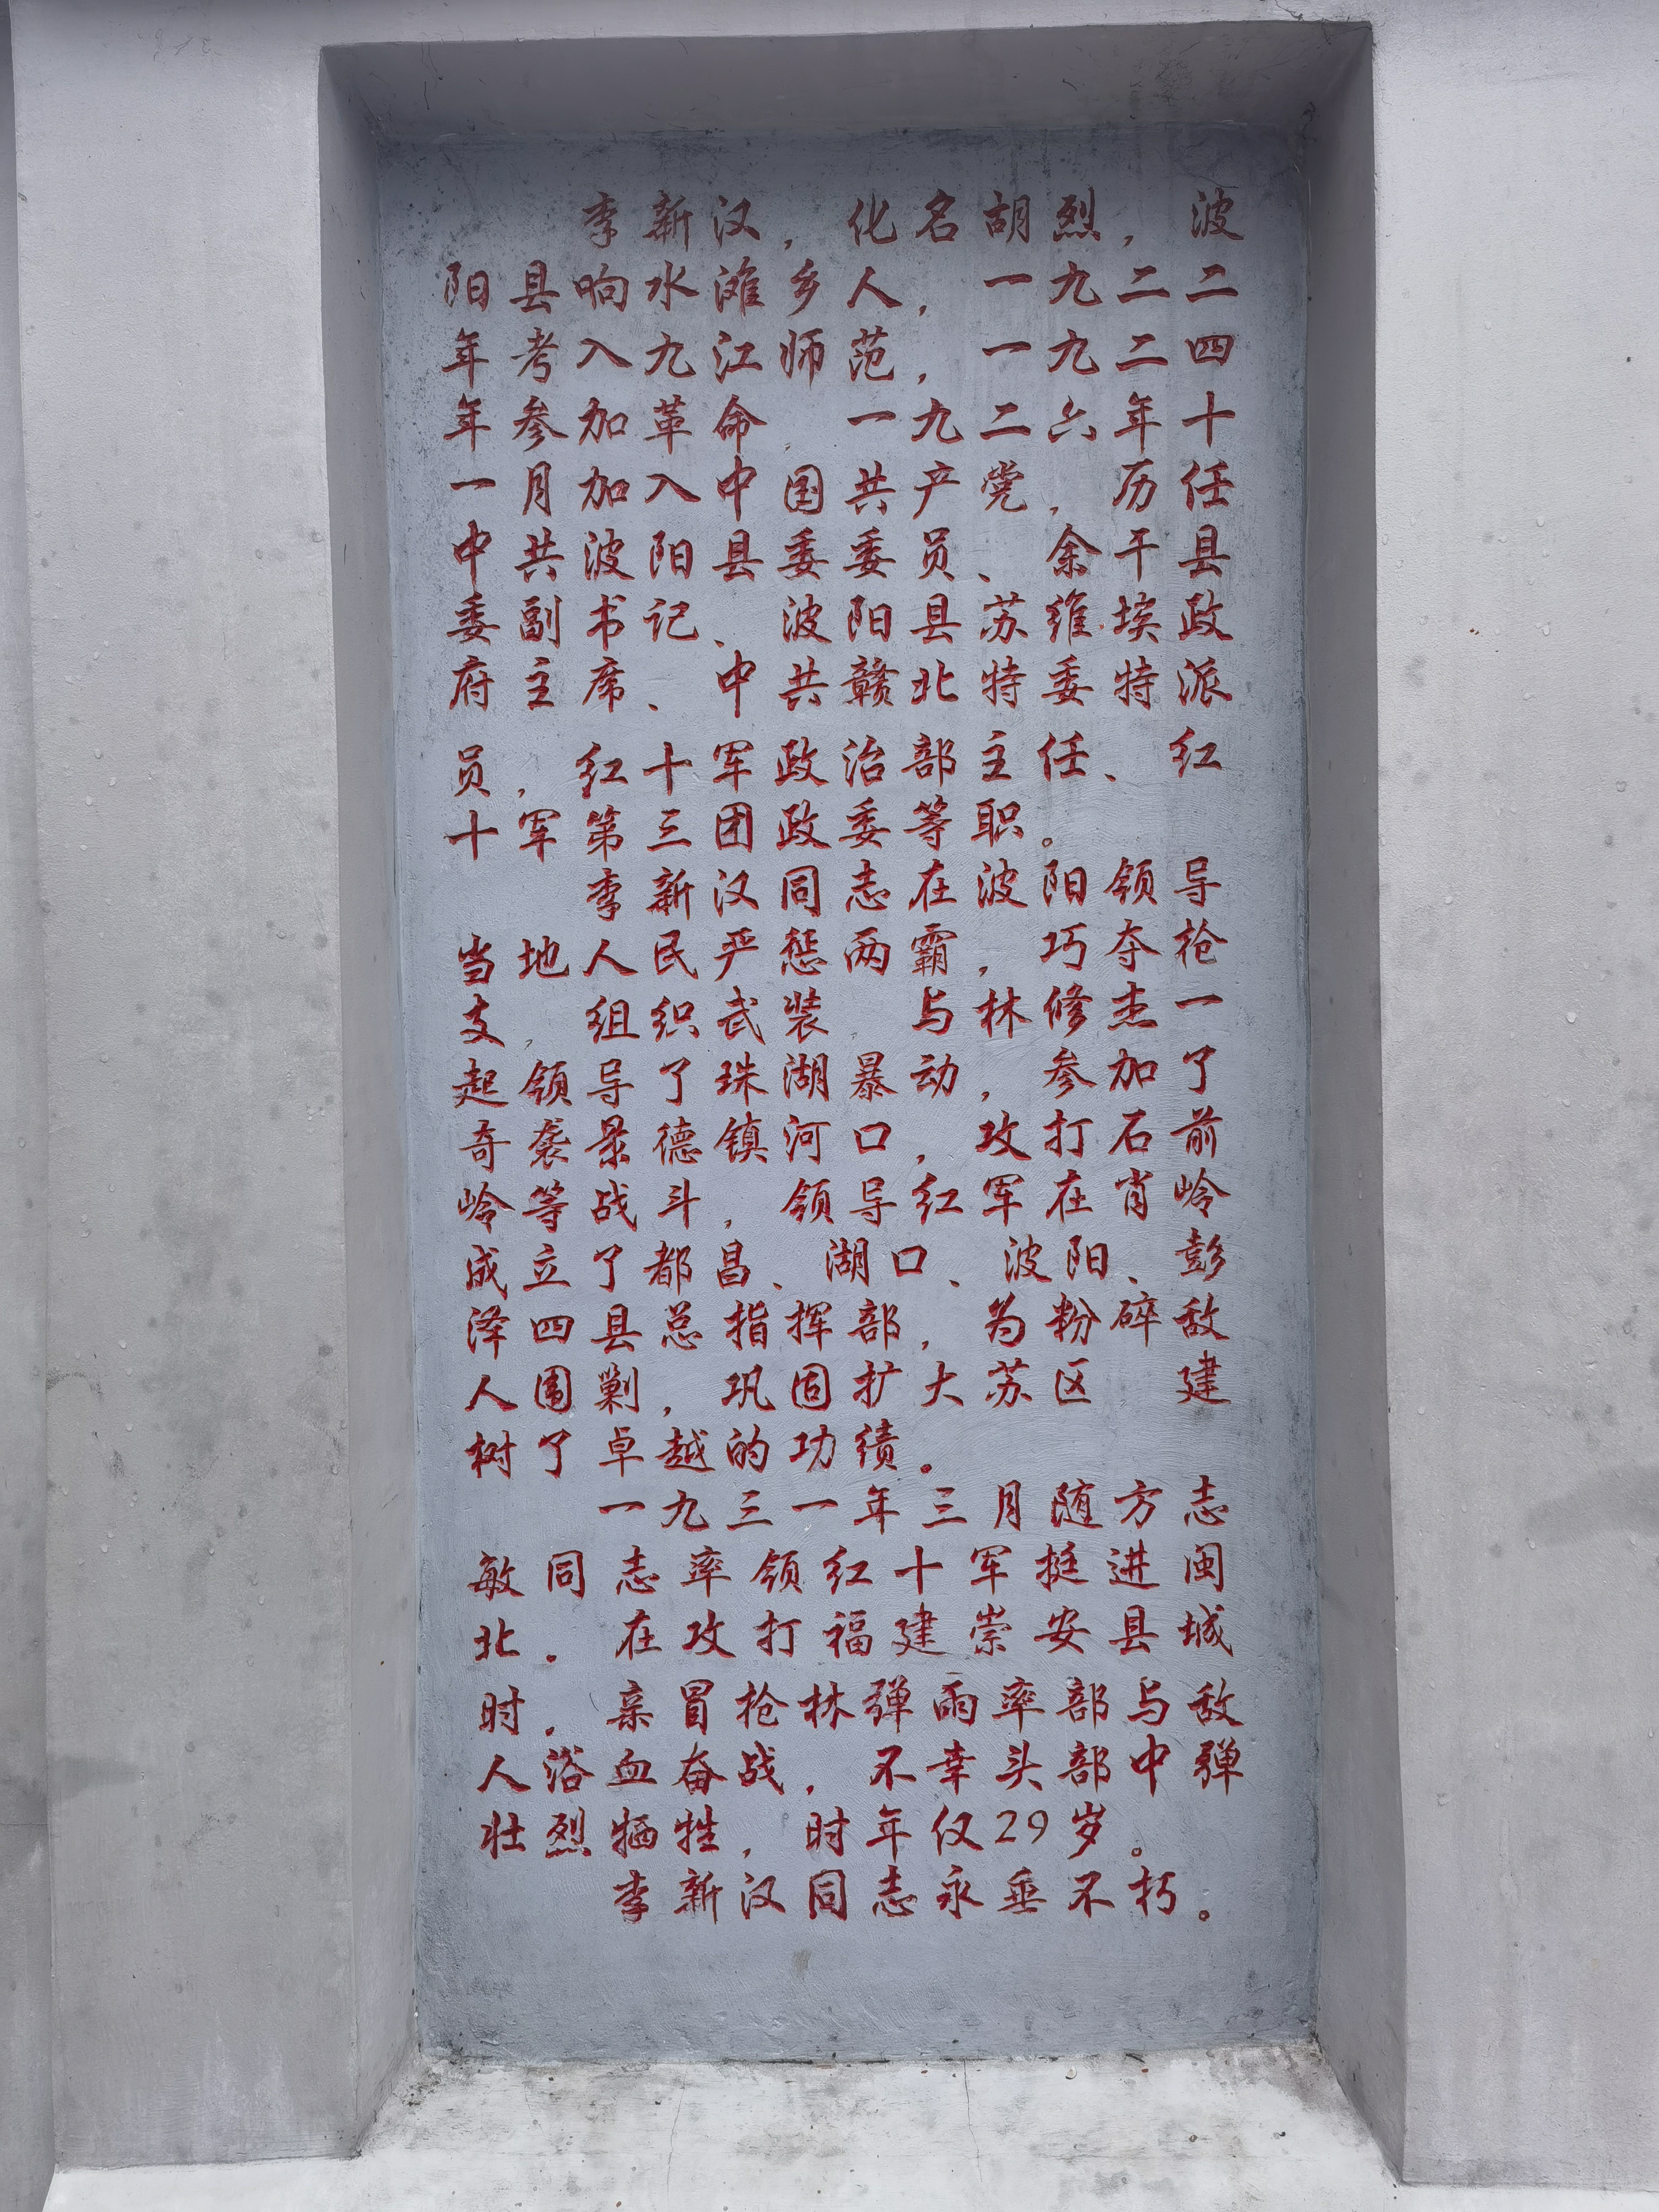 李新汉，化名胡烈，波
阳县响水滩乡人，一九二二
年考入九江师范，一九二四
年参加革命，一九二六年十
一月加入中国共产党，历任
中共波阳县委委员、余干县
委副书记、波阳县苏维埃政
府主席、中共赣北特委特派
员，红十军政治部主任、红
十军第三团政委等职。
李新汉同志在波阳领导
当地人民严惩两霸，巧夺枪
支，组织武装，与林修杰一
起领导了珠湖暴动，参加了
奇袭景德镇河口，攻打石前
岭等战斗，领导红军在肖岭
成立了都昌、湖口、波阳、彭
泽四县总指挥部，为粉碎敌
人围剿，巩固扩大苏区建
树了卓越的功绩。
一九三一年三月随方志
敏同志率领红十军挺进闽
北。在攻打福建崇安县城
时，亲冒枪林弹雨率部与敌
人浴血奋战，不幸头部中弹
壮烈牺牲，时年仅29岁。
李新汉同志永垂不朽。